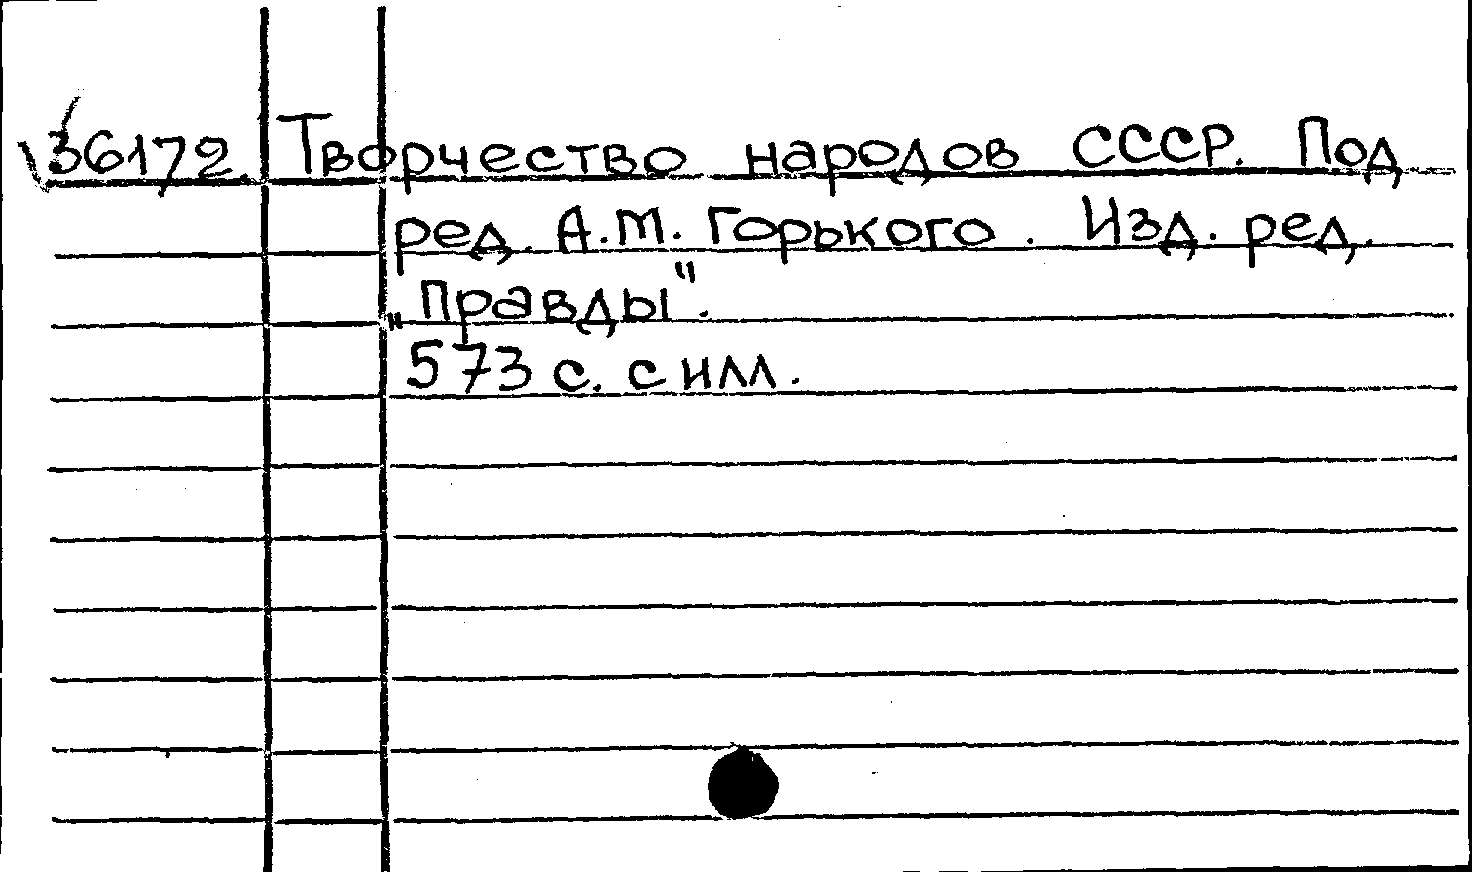 36172. Творчество народов СССР. Под
ред. А.М. Горького. Изд. ред.
„Правды".
573 с. с илл.